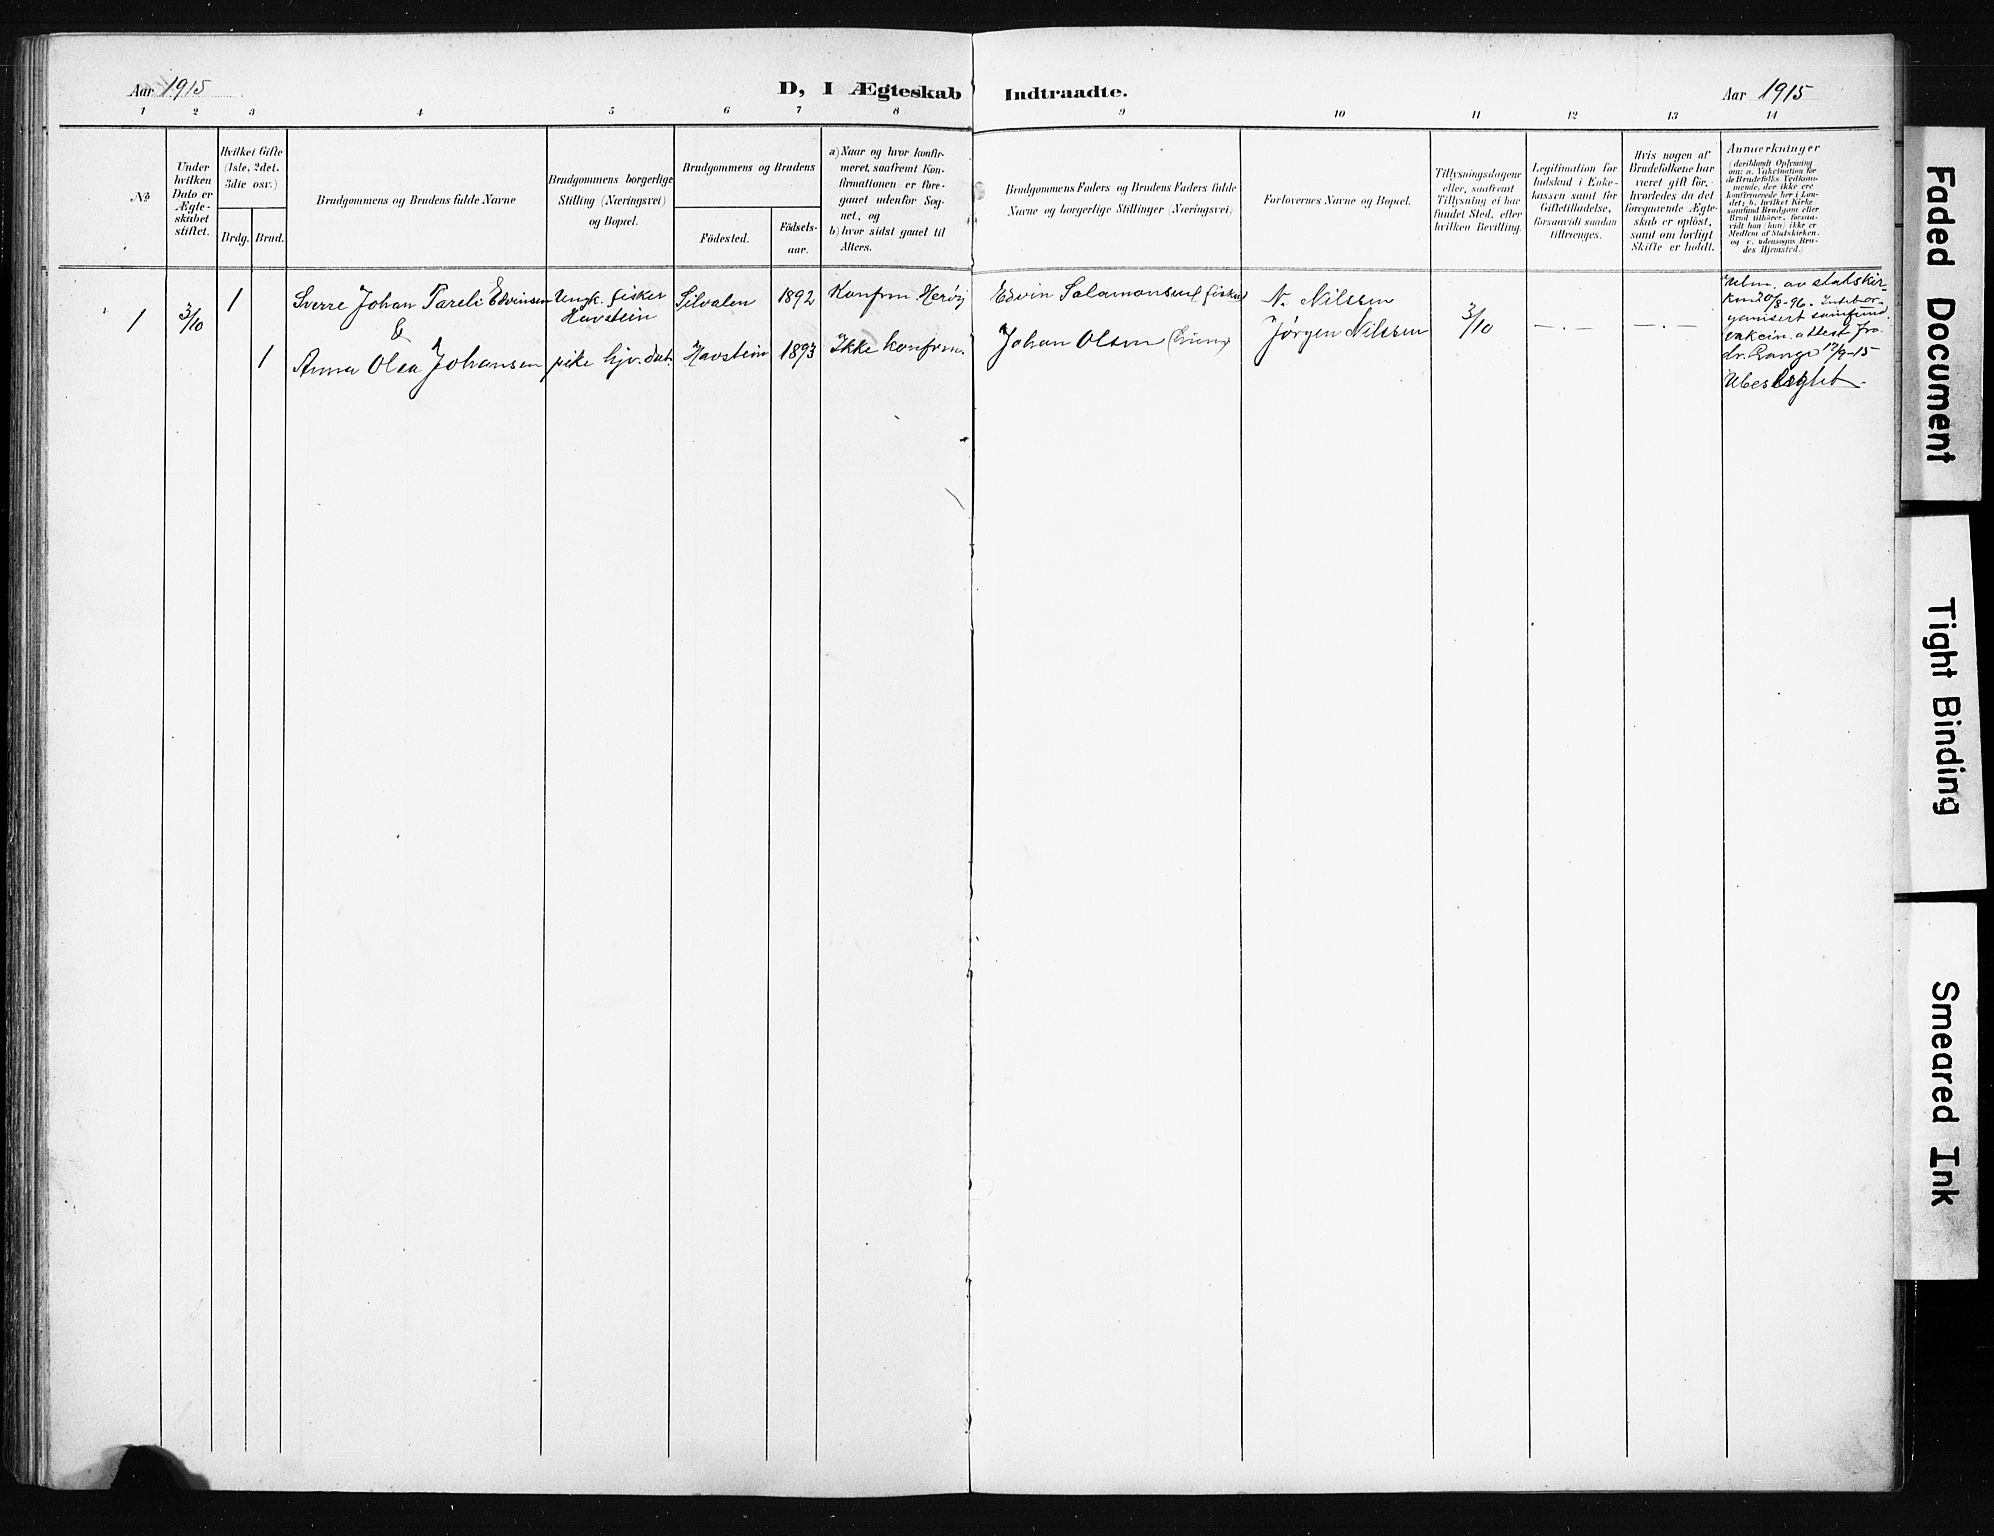 Aar 1915
D, I Ægteskab Indtraadte.
Aar 1915
1 2 3 4 5 6 7 8 9 10 11 12 13 14
№
Under
hvilken
Dato er
Ægte-
skabet
stiftet.
Hvilket Gifte
(1ste, 2det,
3die osv.)
Brdg. Brud.
Brudgommens og Brudens fulde Navne
Brudgommens borgerlige
Stilling (Næringsvei)
og Bopæl.
Brudgommens og Brudens
Födested.
Födsels-
aar.
a) Naar og hvor konfir-
meret, saafremt Kon-
firmationen er fore-
gaaet udenfor Sog-
net, og
b) hvor sidst gaaet til
Alters.
Brudgommens Faders og Brudens Faders fulde
Navne og borgerlige Stillinger (Næringsvei)
Forlovernes Navne og Bopæl.
Tillysningsdagene
eller, saafremt
Tillysning ei har
fundet Sted, efter
hvilken Bevilling.
Legitimation for
Indskud i Enke-
kassen samt for
Giftetilladelse,
forsaavidt saadan
tiltrænges.
Hvis nogen af
Brudefolkene har
været gift før,
hvorledes da det
foregaaende Ægte-
skab er oplöst,
samt om lovligt
Skifte er holdt.
Anmærkninger
(deriblandt Oplysning
om: a. Vakcination for
de Brudefolks Vedkom-
mende, der ikke ere
konfirmerede her i Lan-
det; b. hvilket Kirke-
samfund Brudgom eller
Brud tilhører, forsaa-
vidt han (hun) ikke er
Medlem af Statskirken,
og c. udensogns Bru-
des Hjemsted.)
1 3/10 1 Sverre Johan Pareli Edvinsen Ungk. fisker Silvalen 1892 Konfrm Herøy Edvin Salamonsen (fisker) N. Nilssen 3/10 —.— —.—
Havstein
&
1 Anna Olea Johansen pike hjv. dat. Havstein 1893 Ikke konfrm. Johan Olsen Jørgen Nilssen
Utm. av statskir-
ken 8-96.
samfund.
attest fra
dr. 17/9-15
Ubeslegtet
Faded Document
Tight Binding
Smeared Ink